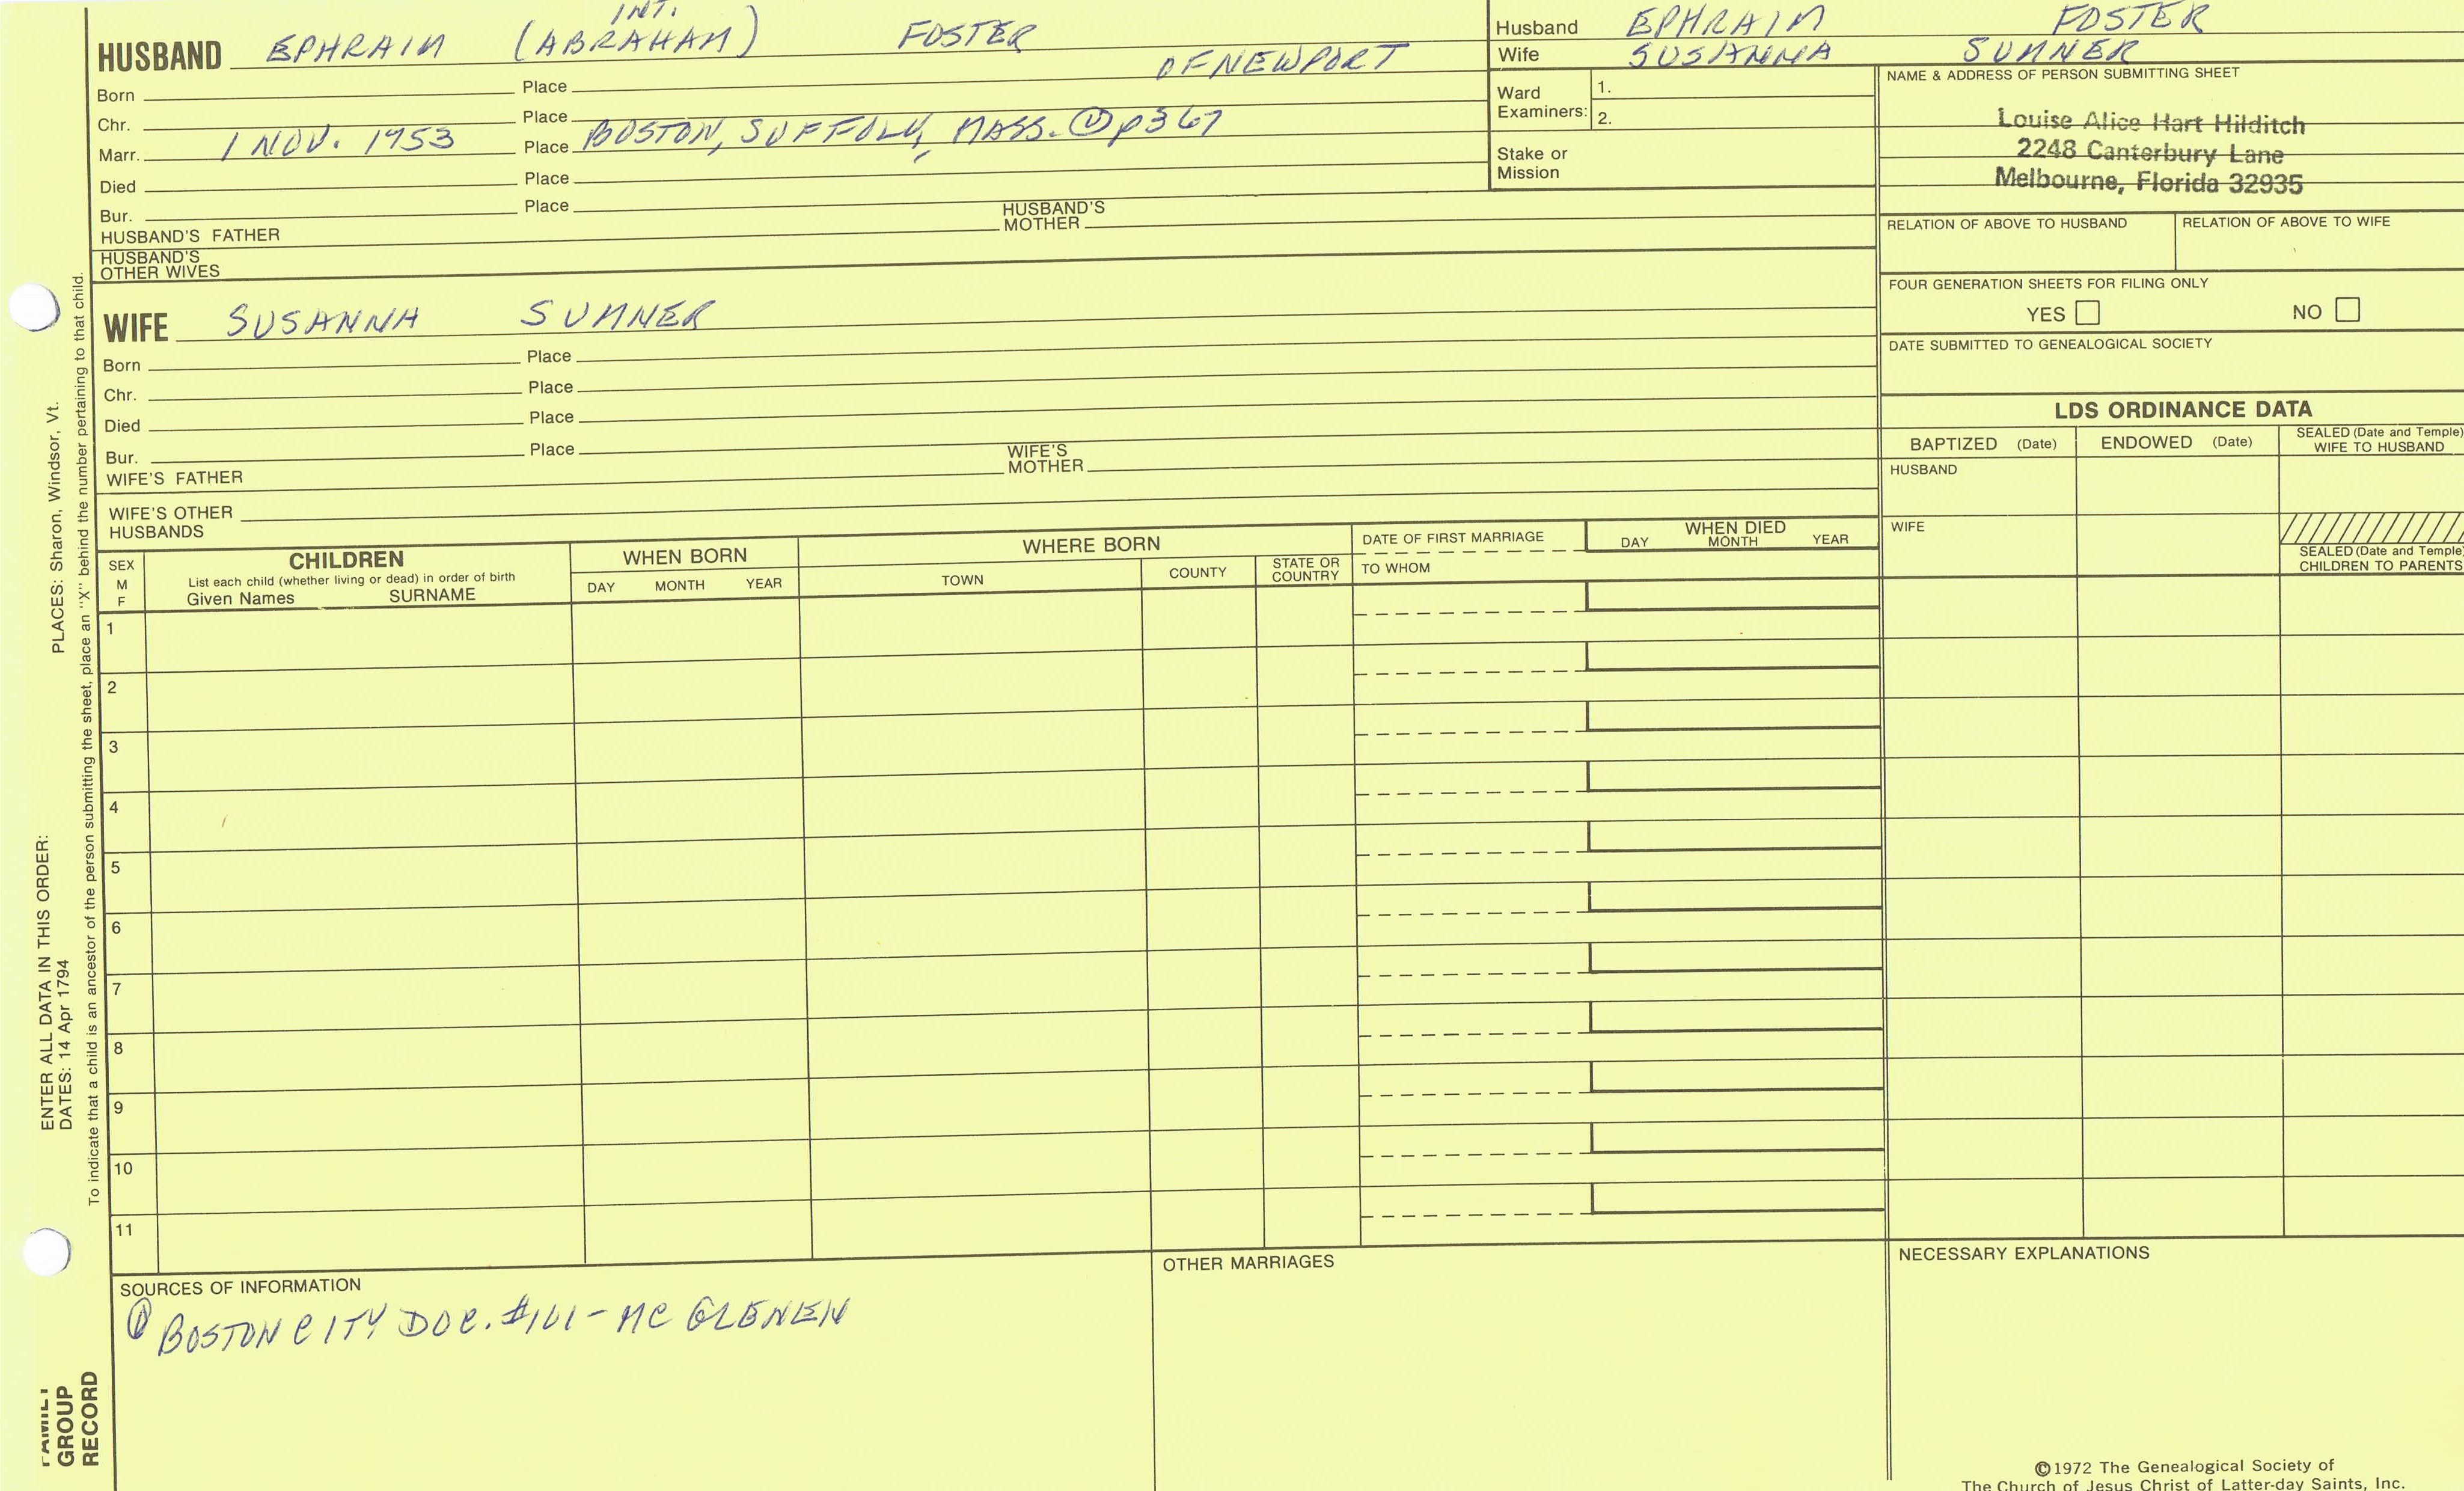 INT.
HUSBAND EPHRAIM (ABRAHAM) FOSTER
OF NEWPORT
Born Place
Chr. Place
Marr. 1 NOV. 1953 Place BOSTON, SUFFOLK, MASS. ① p367
Died Place
Bur. Place
HUSBAND'S FATHER HUSBAND'S MOTHER
HUSBAND'S
OTHER WIVES
WIFE SUSANNA SUMNER
Born Place
Chr. Place
Died Place
Bur. Place
WIFE'S FATHER WIFE'S MOTHER
WIFE'S OTHER
HUSBANDS
Husband EPHRAIM FOSTER
Wife SUSANNA SUMNER
Ward
Examiners:
1.
2.
Stake or
Mission
NAME & ADDRESS OF PERSON SUBMITTING SHEET
Louise Alice Hart Hilditch
2248 Canterbury Lane
Melbourne, Florida 32935
RELATION OF ABOVE TO HUSBAND RELATION OF ABOVE TO WIFE
FOUR GENERATION SHEETS FOR FILING ONLY
YES NO
DATE SUBMITTED TO GENEALOGICAL SOCIETY
LDS ORDINANCE DATA
BAPTIZED (Date) ENDOWED (Date) SEALED (Date and Temple)
WIFE TO HUSBAND
HUSBAND
WIFE
SEALED (Date and Temple)
CHILDREN TO PARENTS
SEX
M
F
CHILDREN
List each child (whether living or dead) in order of birth
Given Names SURNAME
WHEN BORN
DAY MONTH YEAR
WHERE BORN
TOWN COUNTY STATE OR COUNTRY
DATE OF FIRST MARRIAGE
TO WHOM
WHEN DIED
DAY MONTH YEAR
1
2
3
4
5
6
7
8
9
10
11
SOURCES OF INFORMATION
① BOSTON CITY DOC. #101 - MC GLENEN
OTHER MARRIAGES
NECESSARY EXPLANATIONS
©1972 The Genealogical Society of
The Church of Jesus Christ of Latter-day Saints, Inc.
ENTER ALL DATA IN THIS ORDER:
DATES: 14 Apr 1794
PLACES: Sharon, Windsor, Vt.
To indicate that a child is an ancestor of the person submitting the sheet, place an "X" behind the number pertaining to that child.
FAMILY
GROUP
RECORD